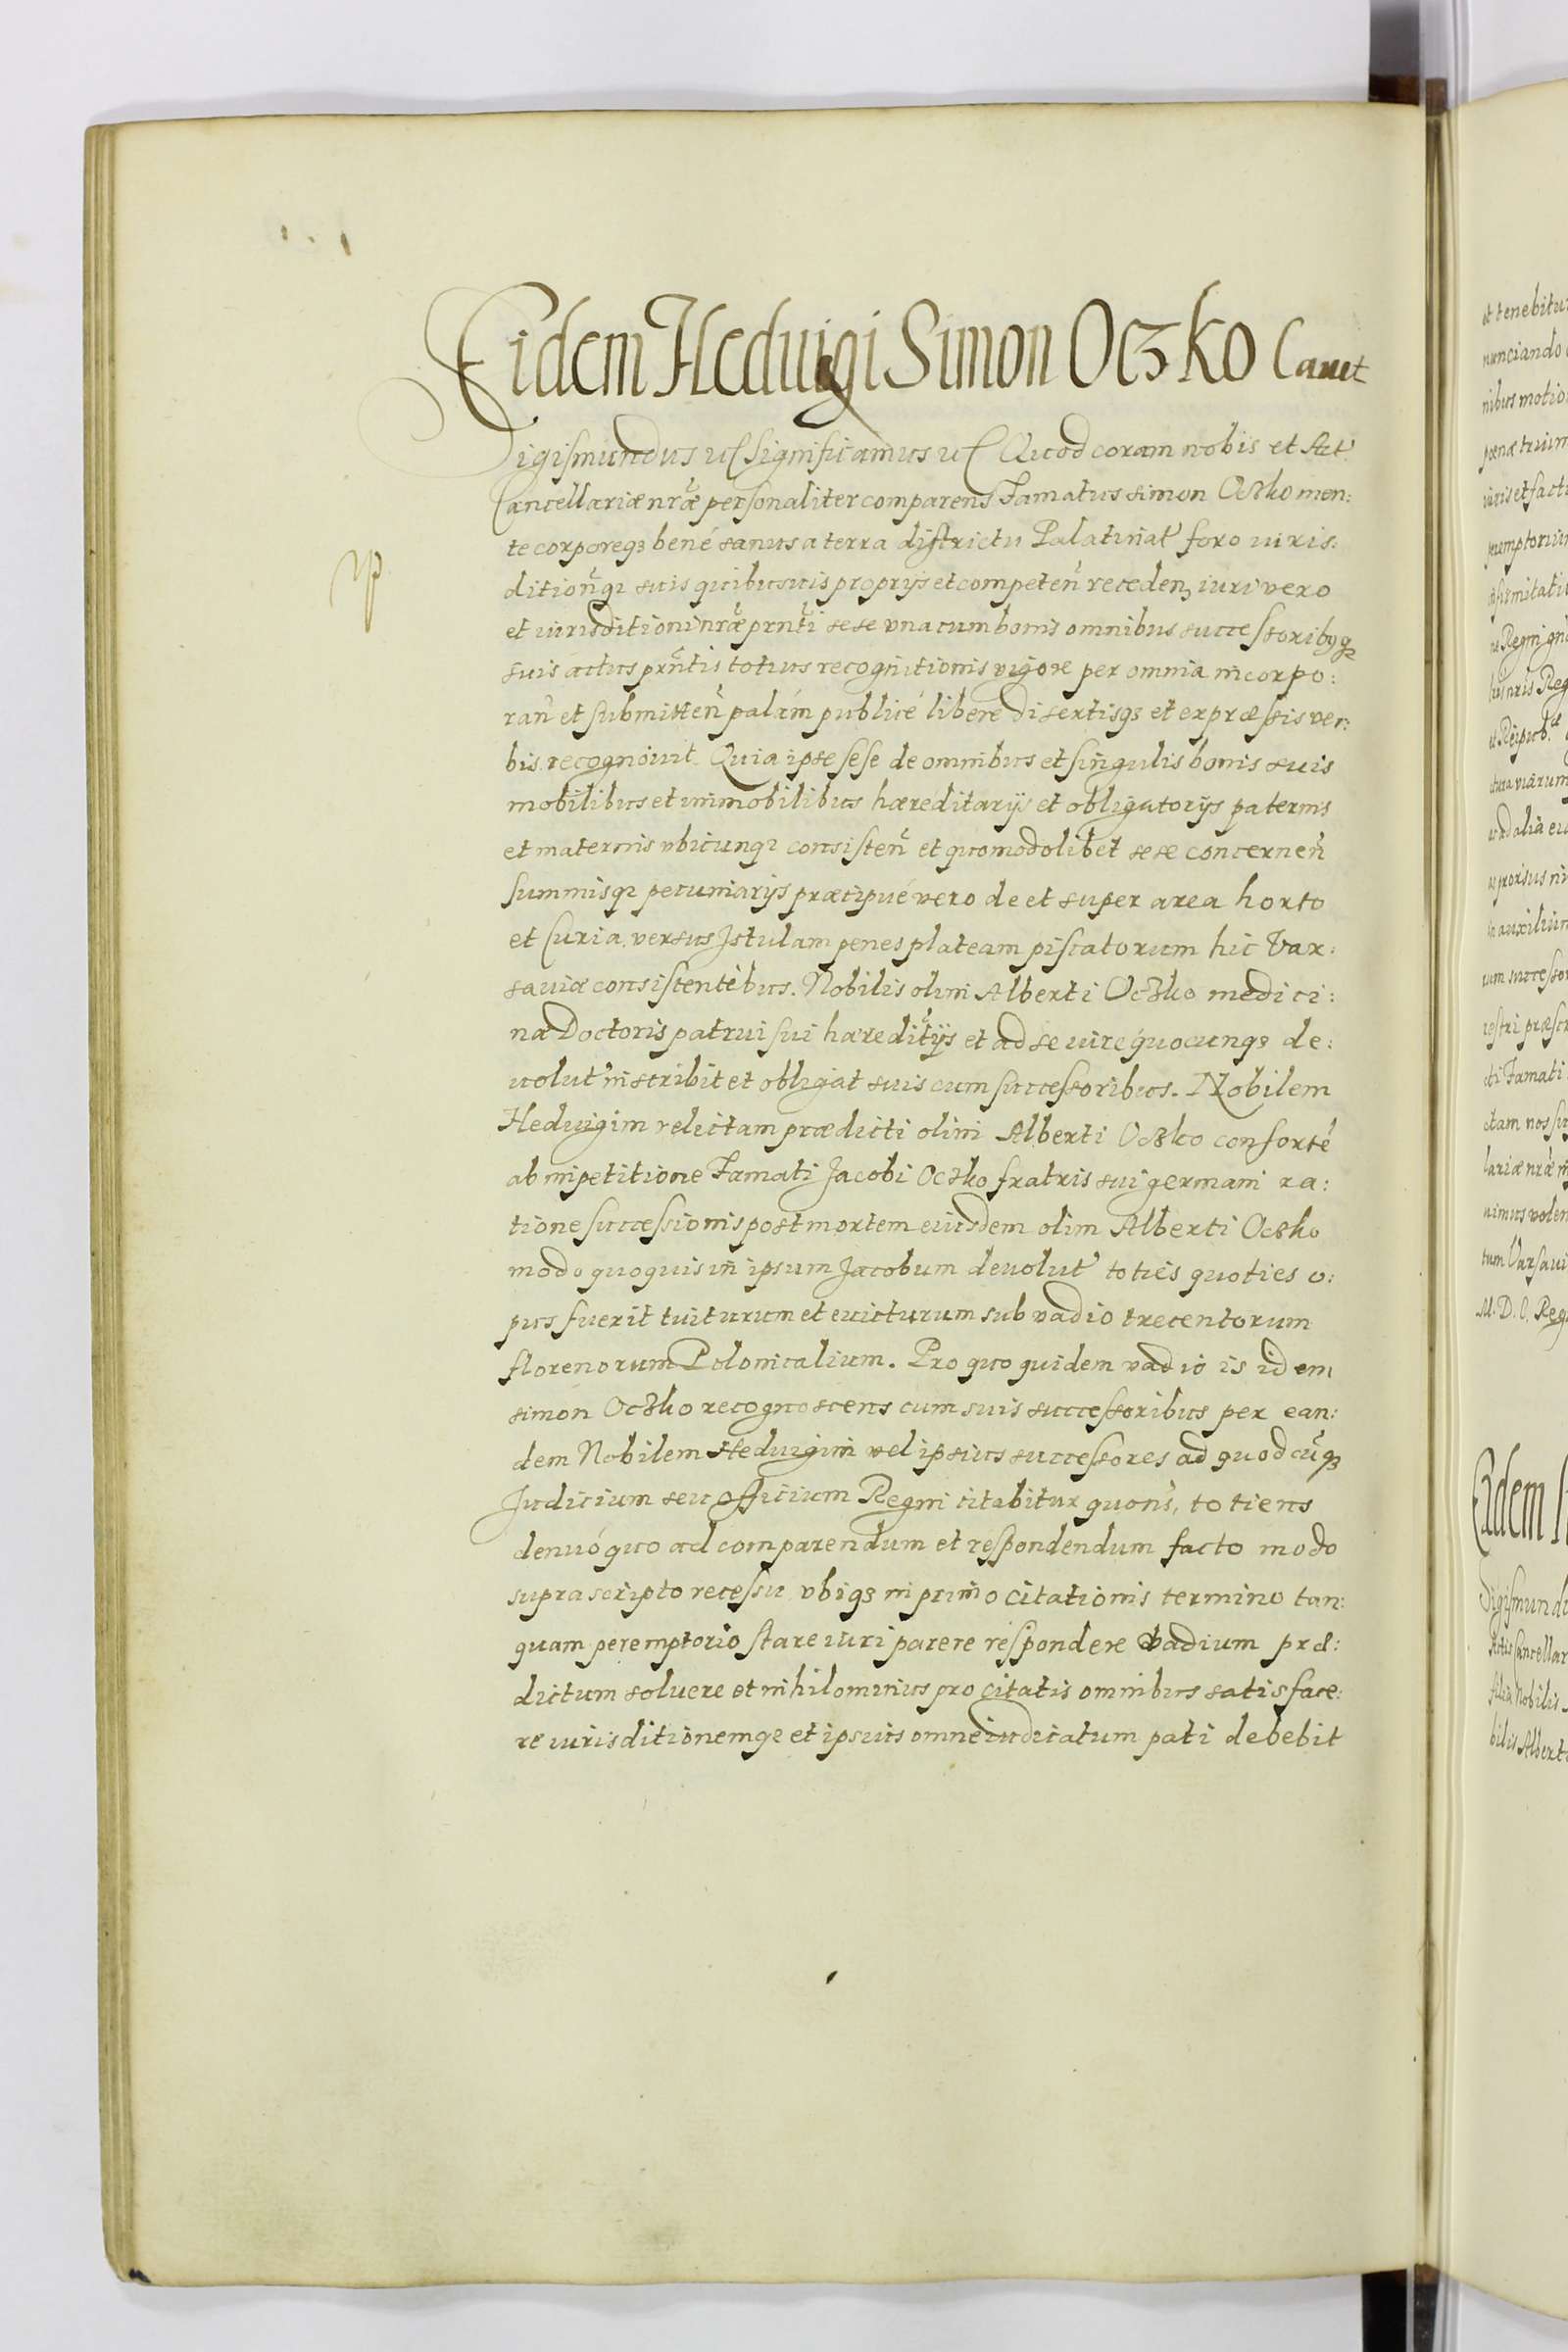 Eidem Heduigi Simon Oczko Cauet
Sigismundus etc Significamus etc Quod coram nobis et Act
Cancellariæ nræ personaliter comparens Famatus Simon Oczko men:
te corporeq3 bené sanus a terra districtu Palatinat foro iuris:
dition̄q3 suis quibusuis proprijs et competeñ receden, iuri vero
et iurisditioni nræ prnti sese vna cum bonis omnibus successoribusq3
suis actus prñtis totius recognitionis vigore per omnia incorpo:
rañ et submitteñ palám publicé libere disertisq3 et expræssis ver:
bis recognouit. Quia ipse sese de omnibus et singulis bonis suis
mobilibus et immobilibus hæreditarijs et obligatorijs paternis
et maternis vbicunq3 consisteñ et quomodolibet sese concerneñ
summisq3 pecuniarijs præcipué vero de et super area horto
et Curia versus Istulam penes plateam piscatorum hic Var:
sauiæ consistentibus. Nobilis olim Alberti Oczko medici:
næ Doctoris patrui sui hæreditijs et ad se iure quocunq3 de:
uolut inscribit et obligat suis cum successoribus. Nobilem
Heduigim relictam prædicti olim Alberti Oczko consorté
ab impetitione Famati Jacobi Oczko fratris sui germani ra:
tione successionis post mortem eiusdem olim Alberti Oczko
modo quouis in ipsum Jacobum deuolut toties quoties o:
pus fuerit tuiturum et euicturum sub vadio trecentorum
florenorum Polonicalium. Pro quo quidem vadio is idem
Simon Oczko recognoscens cum suis successoribus per ean:
dem Nobilem Heduigim vel ipsius successores ad quodcūq3
Judicium seu officium Regni citabitur quoñs, totiens
denuó quo ad comparendum et respondendum facto modo
suprascripto recessu vbiq3 in primo citationis termino tan:
quam peremptorio stare iuri parere respondere Vadium præ:
dictum soluere et nihilominus pro citatis omnibus satisface:
re iurisditionemq3 et ipsius omne iudicatum pati debebit
et tenebitur
nunciando
nibus motio
pœnæ trium
iuris et facti
Regni
uros Reg
ad alia
prorsus ni
auxilium
um successor
præscr
Famati
ctam nos
lariæ nræ
nimus volen
tum Varsaui
M. D. C. Reg
Eidem
Sigismund
Actis Cancellar
Nobilis
bilis Albert